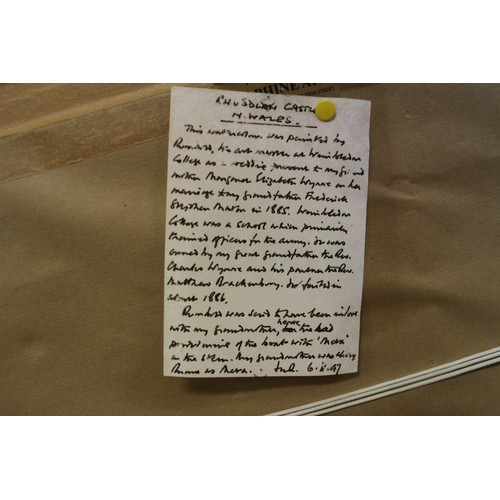 PHINE A
RHUSDLAN CASTLE
N. WALES.
This watercolour was painted by
Rumbold, the art master at Wimbledon
College as a wedding present to my grand
mother Margaret Elizabeth Wynne on her
marriage to my grandfather Frederick
Stephen in 1885. Wimbledon
College was a school which primarily
trained officers for the army. It was
owned by my great grandfather the Rev.
Charles Wynne and his partner the Rev.
Matthew Brackenbury. It failed in
about 1886.
was said to have been in love
with my grandmother, hence the
of the boat with 'Meta'
on the My grandmother was always
known as Meta. 6.11.97